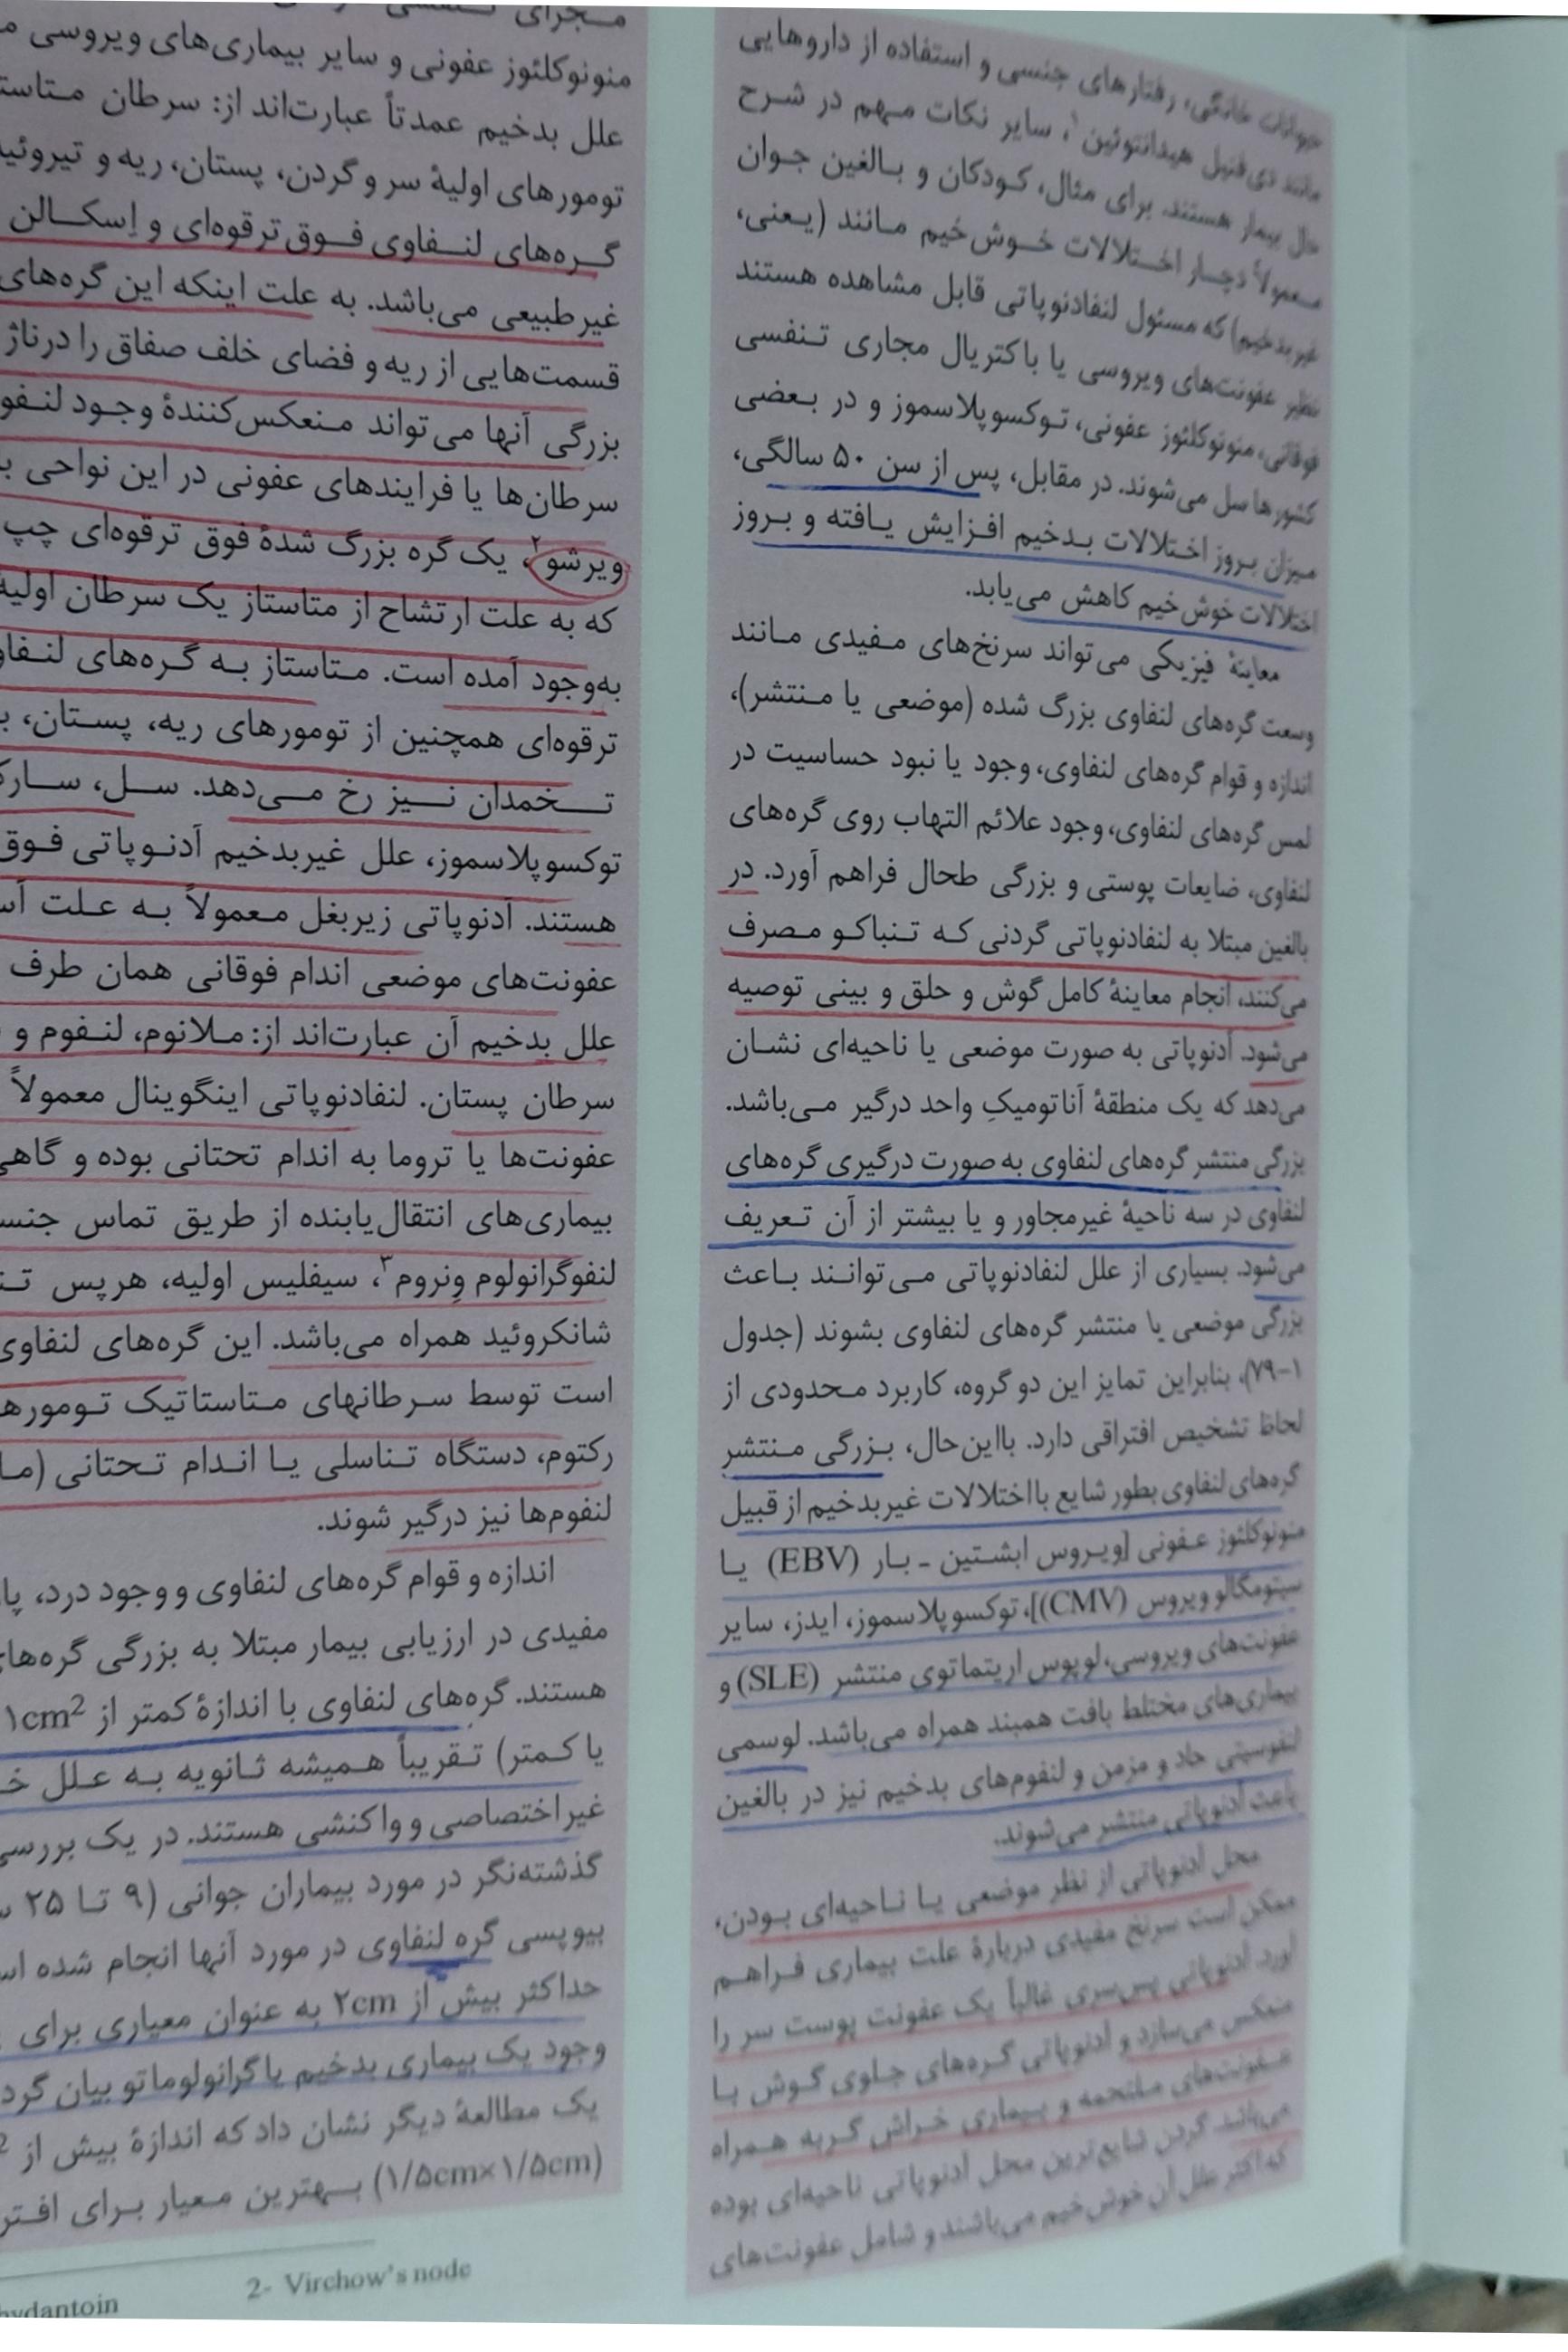 حیوانات خانگی، رفتارهای جنسی و استفاده از داروهایی
مانند دی‌فنیل هیدانتوئین۱، سایر نکات مهم در شرح
حال بیمار هستند. برای مثال، کودکان و بالغین جوان
معمولاً دچار اختلالات خوش‌خیم مانند (یعنی،
غیربدخیم) که مسئول لنفادنوپاتی قابل مشاهده هستند
نظیر عفونت‌های ویروسی یا باکتریال مجاری تنفسی
فوقانی، منونوکلئوز عفونی، توکسوپلاسموز و در بعضی
کشورها سل می‌شوند. در مقابل، پس از سن ۵۰ سالگی،
میزان بروز اختلالات بدخیم افزایش یافته و بروز
اختلالات خوش‌خیم کاهش می‌یابد.
معاینهٔ فیزیکی می‌تواند سرنخ‌های مفیدی مانند
وسعت گره‌های لنفاوی بزرگ شده (موضعی یا منتشر)،
اندازه و قوام گره‌های لنفاوی، وجود یا نبود حساسیت در
لمس گره‌های لنفاوی، وجود علائم التهاب روی گره‌های
لنفاوی، ضایعات پوستی و بزرگی طحال فراهم آورد. در
بالغین مبتلا به لنفادنوپاتی گردنی که تنباکو مصرف
می‌کنند، انجام معاینهٔ کامل گوش و حلق و بینی توصیه
می‌شود. آدنوپاتی به صورت موضعی یا ناحیه‌ای نشان
می‌دهد که یک منطقهٔ آناتومیکِ واحد درگیر می‌باشد.
بزرگی منتشر گره‌های لنفاوی به صورت درگیری گره‌های
لنفاوی در سه ناحیهٔ غیرمجاور و یا بیشتر از آن تعریف
می‌شود. بسیاری از علل لنفادنوپاتی می‌توانند باعث
بزرگی موضعی یا منتشر گره‌های لنفاوی بشوند (جدول
۱-۷۹)، بنابراین تمایز این دو گروه، کاربرد محدودی از
لحاظ تشخیص افتراقی دارد. بااین‌حال، بزرگی منتشر
گره‌های لنفاوی بطور شایع با اختلالات غیربدخیم از قبیل
منونوکلئوز عفونی [ویروس ابشتین ـ بار (EBV) یا
سیتومگالوویروس (CMV)]، توکسوپلاسموز، ایدز، سایر
عفونت‌های ویروسی، لوپوس اریتماتوی منتشر (SLE) و
بیماری‌های مختلط بافت همبند همراه می‌باشد. لوسمی
لنفوسیتی حاد و مزمن و لنفوم‌های بدخیم نیز در بالغین
باعث آدنوپاتی منتشر می‌شوند.
محل آدنوپاتی از نظر موضعی یا ناحیه‌ای بودن،
ممکن است سرنخ مفیدی دربارهٔ علت بیماری فراهم
آورد. آدنوپاتی پس‌سری غالباً یک عفونت پوست سر را
منعکس می‌سازد و آدنوپاتی گره‌های جلوی گوش با
عفونت‌های ملتحمه و بیماری خراش گربه همراه
می‌باشد. گردن شایع‌ترین محل آدنوپاتی ناحیه‌ای بوده
که اکثر علل آن خوش‌خیم می‌باشند و شامل عفونت‌های
مجرای تنفسی
منونوکلئوز عفونی و سایر بیماری‌های ویروسی
علل بدخیم عمدتاً عبارت‌اند از: سرطان
تومورهای اولیهٔ سر و گردن، پستان، ریه و
گره‌های لنفاوی فوق ترقوه‌ای و اِسکالن
غیرطبیعی می‌باشد. به علت اینکه این گره‌های
قسمت‌هایی از ریه و فضای خلف صفاق را درناژ
بزرگی آنها می‌تواند منعکس‌کنندهٔ وجود
سرطان‌ها یا فرایندهای عفونی در این نواحی
ویرشو۲، یک گره بزرگ شدهٔ فوق ترقوه‌ای چپ
که به علت ارتشاح از متاستاز یک سرطان
به‌وجود آمده است. متاستاز به گره‌های
ترقوه‌ای همچنین از تومورهای ریه، پستان،
تخمدان نیز رخ می‌دهد. سل،
توکسوپلاسموز، علل غیربدخیم آدنوپاتی فوق
هستند. آدنوپاتی زیربغل معمولاً به علت
عفونت‌های موضعی اندام فوقانی همان طرف
علل بدخیم آن عبارت‌اند از: ملانوم، لنفوم و
سرطان پستان. لنفادنوپاتی اینگوینال معمولاً
عفونت‌ها یا تروما به اندام تحتانی بوده و
بیماری‌های انتقال‌یابنده از طریق تماس
لنفوگرانولوم وِنروم۳، سیفلیس اولیه، هرپس
شانکروئید همراه می‌باشد. این گره‌های
است توسط سرطانهای متاستاتیک
رکتوم، دستگاه تناسلی یا اندام تحتانی
لنفوم‌ها نیز درگیر شوند.
اندازه و قوام گره‌های لنفاوی و وجود درد،
مفیدی در ارزیابی بیمار مبتلا به بزرگی
هستند. گره‌های لنفاوی با اندازهٔ کمتر از ۱cm2
یا کمتر) تقریباً همیشه ثانویه به علل
غیراختصاصی و واکنشی هستند. در یک
گذشته‌نگر در مورد بیماران جوانی (۹ تا ۲۵
بیوپسی گره لنفاوی در مورد آنها انجام شده
حداکثر بیش از ۲cm به عنوان معیاری برای
وجود یک بیماری بدخیم یا گرانولوماتو بیان
یک مطالعهٔ دیگر نشان داد که اندازهٔ بیش از
(۱/۵cm×۱/۵cm) بهترین معیار برای
2- Virchow's node